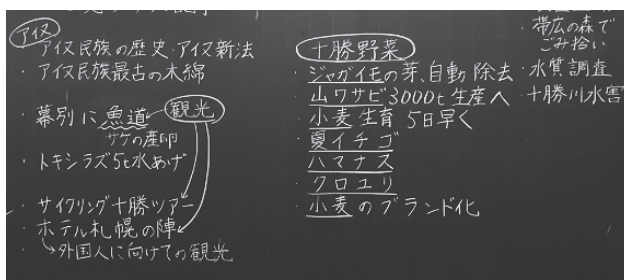 アイヌ
アイヌ民族の歴史・アイヌ新法
・アイヌ民族最古の木綿
・幕別に魚道
観光
サケの産卵
・トキシラズ5t水あげ
・サイクリング十勝ツアー
・ホテル札幌の陣
・外国人に向けての観光
十勝野菜
・ジャガイモの芽、自動除去
・山ワサビ3000t生産へ
・小麦生育 5日早く
・夏イチゴ
・ハマナス
・クロユリ
・小麦のブランド化
・帯広の森で
ごみ拾い
・水質調査
・十勝川水害